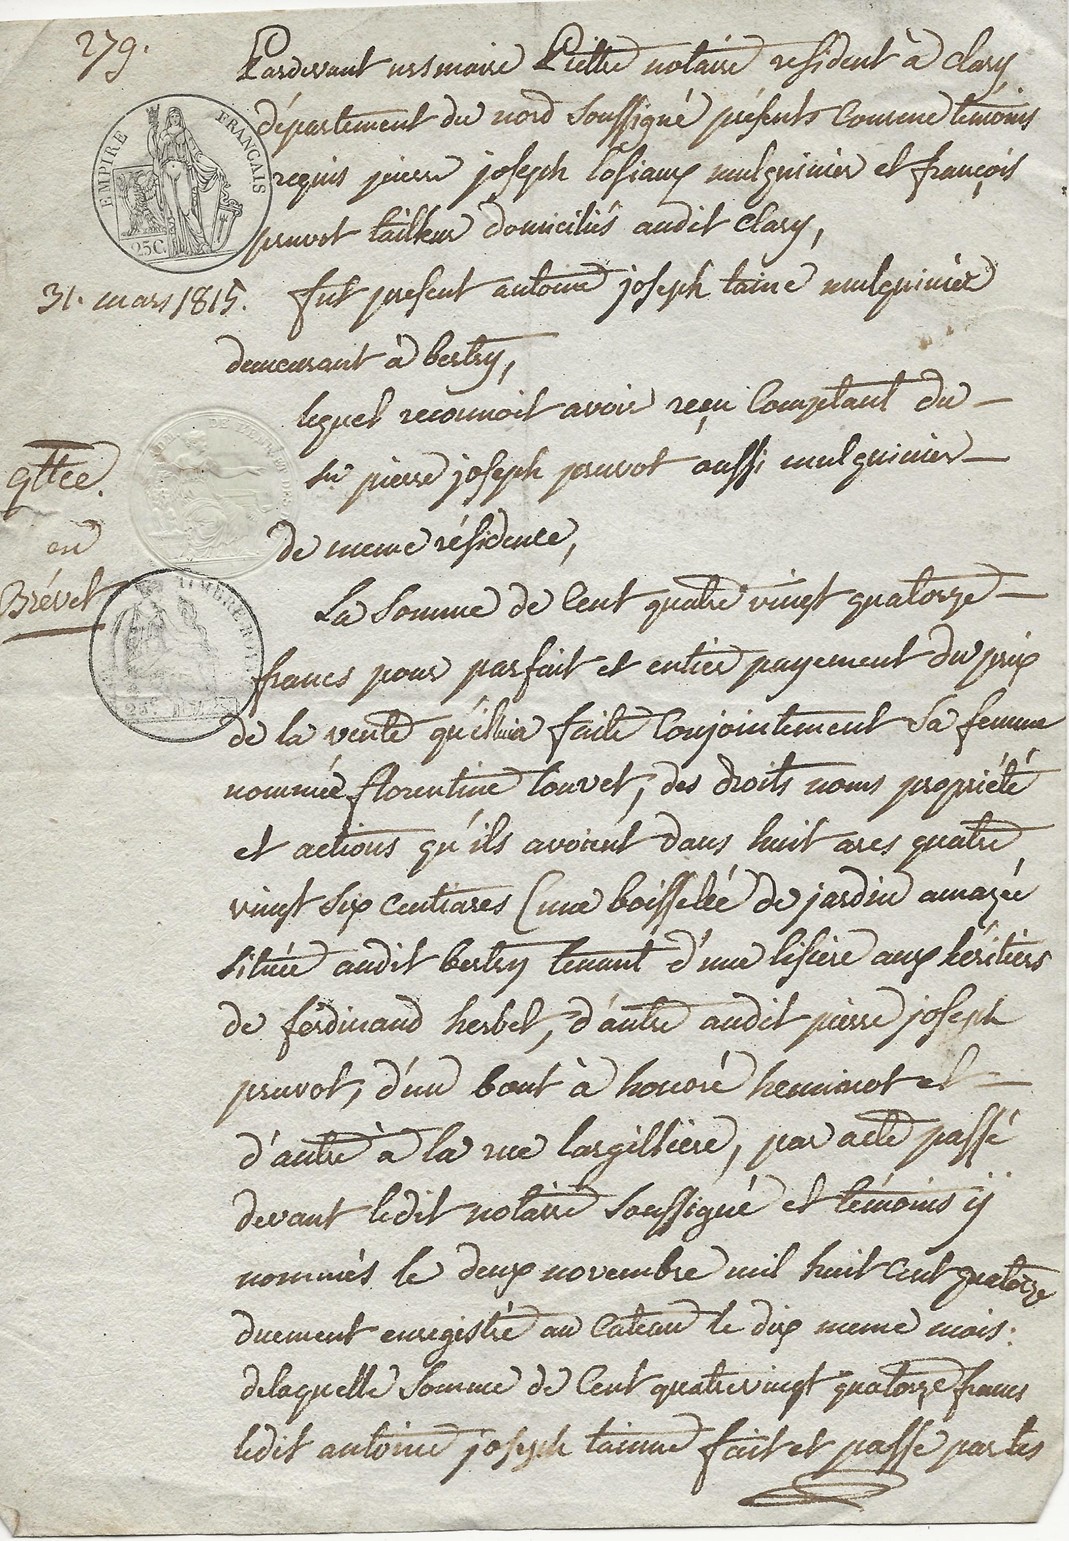 279.
Pardevant ursmaire Piettre notaire résident à Clary
département du nord soussigné présents Comme témoins
requis pierre joseph Losiaux mulquinier et françois
pruvot tailleur domiciliés audit Clary,
31. mars 1815. fut présent antoine joseph taine mulquinier
demeurant à bertry,
lequel reconnoit avoir reçu Comptant du
sr pierre joseph pruvot aussi mulquinier
de meme résidence,
qttce.
en
Brévet
La Somme de Cent quatre vingt quatorze
francs pour parfait et entier payement du prix
de la vente qu'il lui a faite Conjointement Sa femme
nommée florentine Louvet, des droits noms propriété
et actions qu'ils avoient dans huit ares quatre
vingt six centiares (une boisselée de jardin amazée
située audit bertry tenant d'une lisière aux héritiers
de ferdinand herbet, d'autre audit pierre joseph
pruvot, d'un bout à honoré heminot et
d'autre à la rue largillière, par acte passé
devant ledit notaire soussigné et témoins ÿ
nommés le deux novembre mil huit Cent quatorze
duement enregistré au Cateau le dix meme mois:
delaquelle Somme de Cent quatrevingt quatorze francs
ledit antoine joseph tainne fait et passé par les
EMPIRE FRANÇAIS
25C.
TIMBRE ROYAL
25C